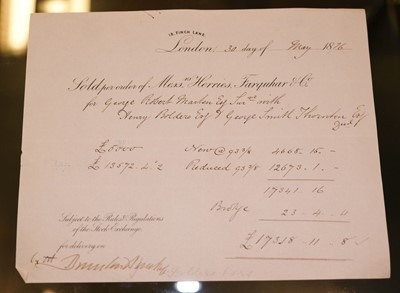 18 FINCH LANE,
London, 30 day of May 1876
Sold per order of Mess.rs Herries, Farquhar & Co
for George Robert Marten Esq with
Henry Bolders Esq & George Smith Thornton Esq
£5000 New @ 93 7/8 4668.15 -
£13572.4.2 Reduced 93 3/8 12673.1. -
17341.16
Brokge 23-4-4
£17318-11-8
Subject to the Rules & Regulations
of the Stock Exchange.
for delivery on